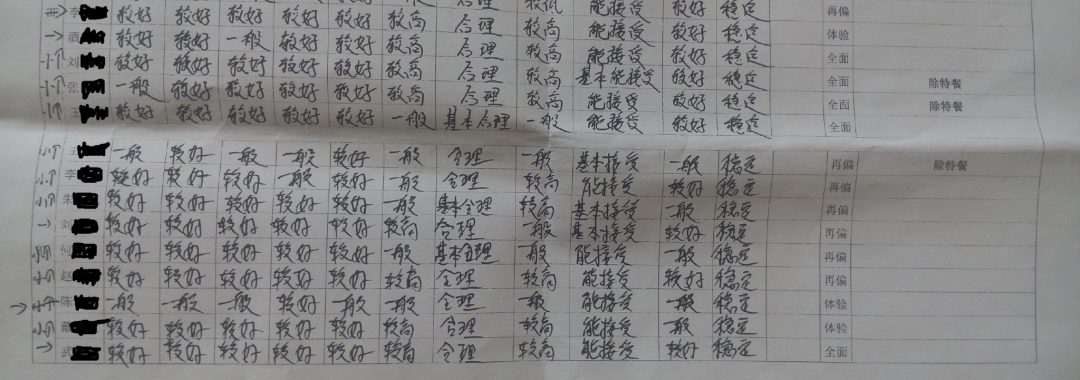 李 较好 较好 较好 较好 较好 较高 合理 较低 能接受 较好 稳定 再偏
较好 较好 一般 较好 较好 较高 合理 较高 能接受 较好 稳定 体验
刘 较好 较好 较好 较好 较好 较高 合理 较高 能接受 较好 稳定 全面
张 一般 较好 较好 较好 较好 较高 合理 较高 基本能接受 较好 稳定 全面 除特餐
王 较好 较好 较好 较好 较好 较高 合理 较高 能接受 较好 稳定 全面 除特餐
较好 较好 较好 较好 较好 一般 基本合理 一般 能接受 较好 稳定 全面
一般 较好 一般 一般 较好 一般 合理 一般 基本接受 一般 稳定 再偏 除特餐
李 较好 较好 较好 一般 较好 一般 合理 较高 能接受 较好 稳定 再偏
朱 较好 较好 较好 较好 较好 一般 基本合理 较高 基本接受 一般 稳定 再偏
刘 较好 较好 较好 较好 较好 较高 合理 一般 基本接受 较好 稳定 再偏
何 较好 较好 较好 较好 较好 一般 基本合理 一般 能接受 一般 稳定 再偏
赵 较好 较好 较好 较好 较好 较高 合理 较高 能接受 较好 稳定 再偏
陈 一般 一般 一般 较好 一般 一般 合理 一般 能接受 一般 稳定 体验
戴 较好 较好 较好 较好 较好 较高 合理 较高 能接受 一般 稳定 体验
武 较好 较好 较好 较好 较好 较高 合理 较高 能接受 较好 稳定 全面